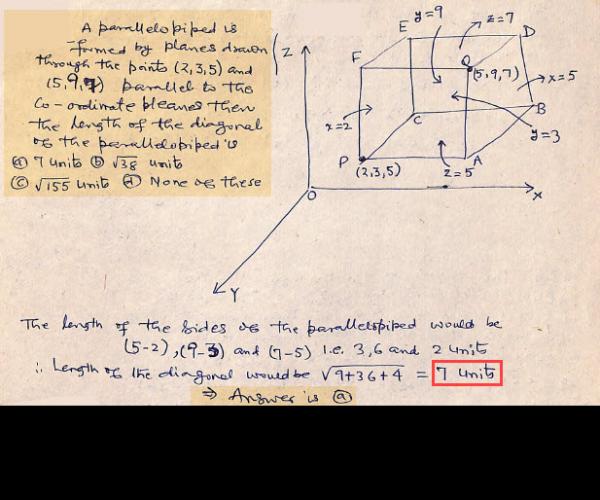 A parallelopiped is
formed by planes drawn
through the points (2,3,5) and
(5,9,7) parallel to the
Co-ordinate pleanes then
the length of the diagonal
of the parallelopiped is
(a) 7 units (b) √38 units
(c) √155 units (d) None of these
Z
E
y=9
z=7
D
F
Q
(5,9,7)
x=5
x=2
C
B
y=3
P
(2,3,5)
z=5
A
O
X
Y
The length of the sides of the parallelopiped would be
(5-2), (9-3) and (7-5) i.e. 3,6 and 2 units
∴ Length of the diagonal would be √9+36+4 = 7 units
⇒ Answer is (a)